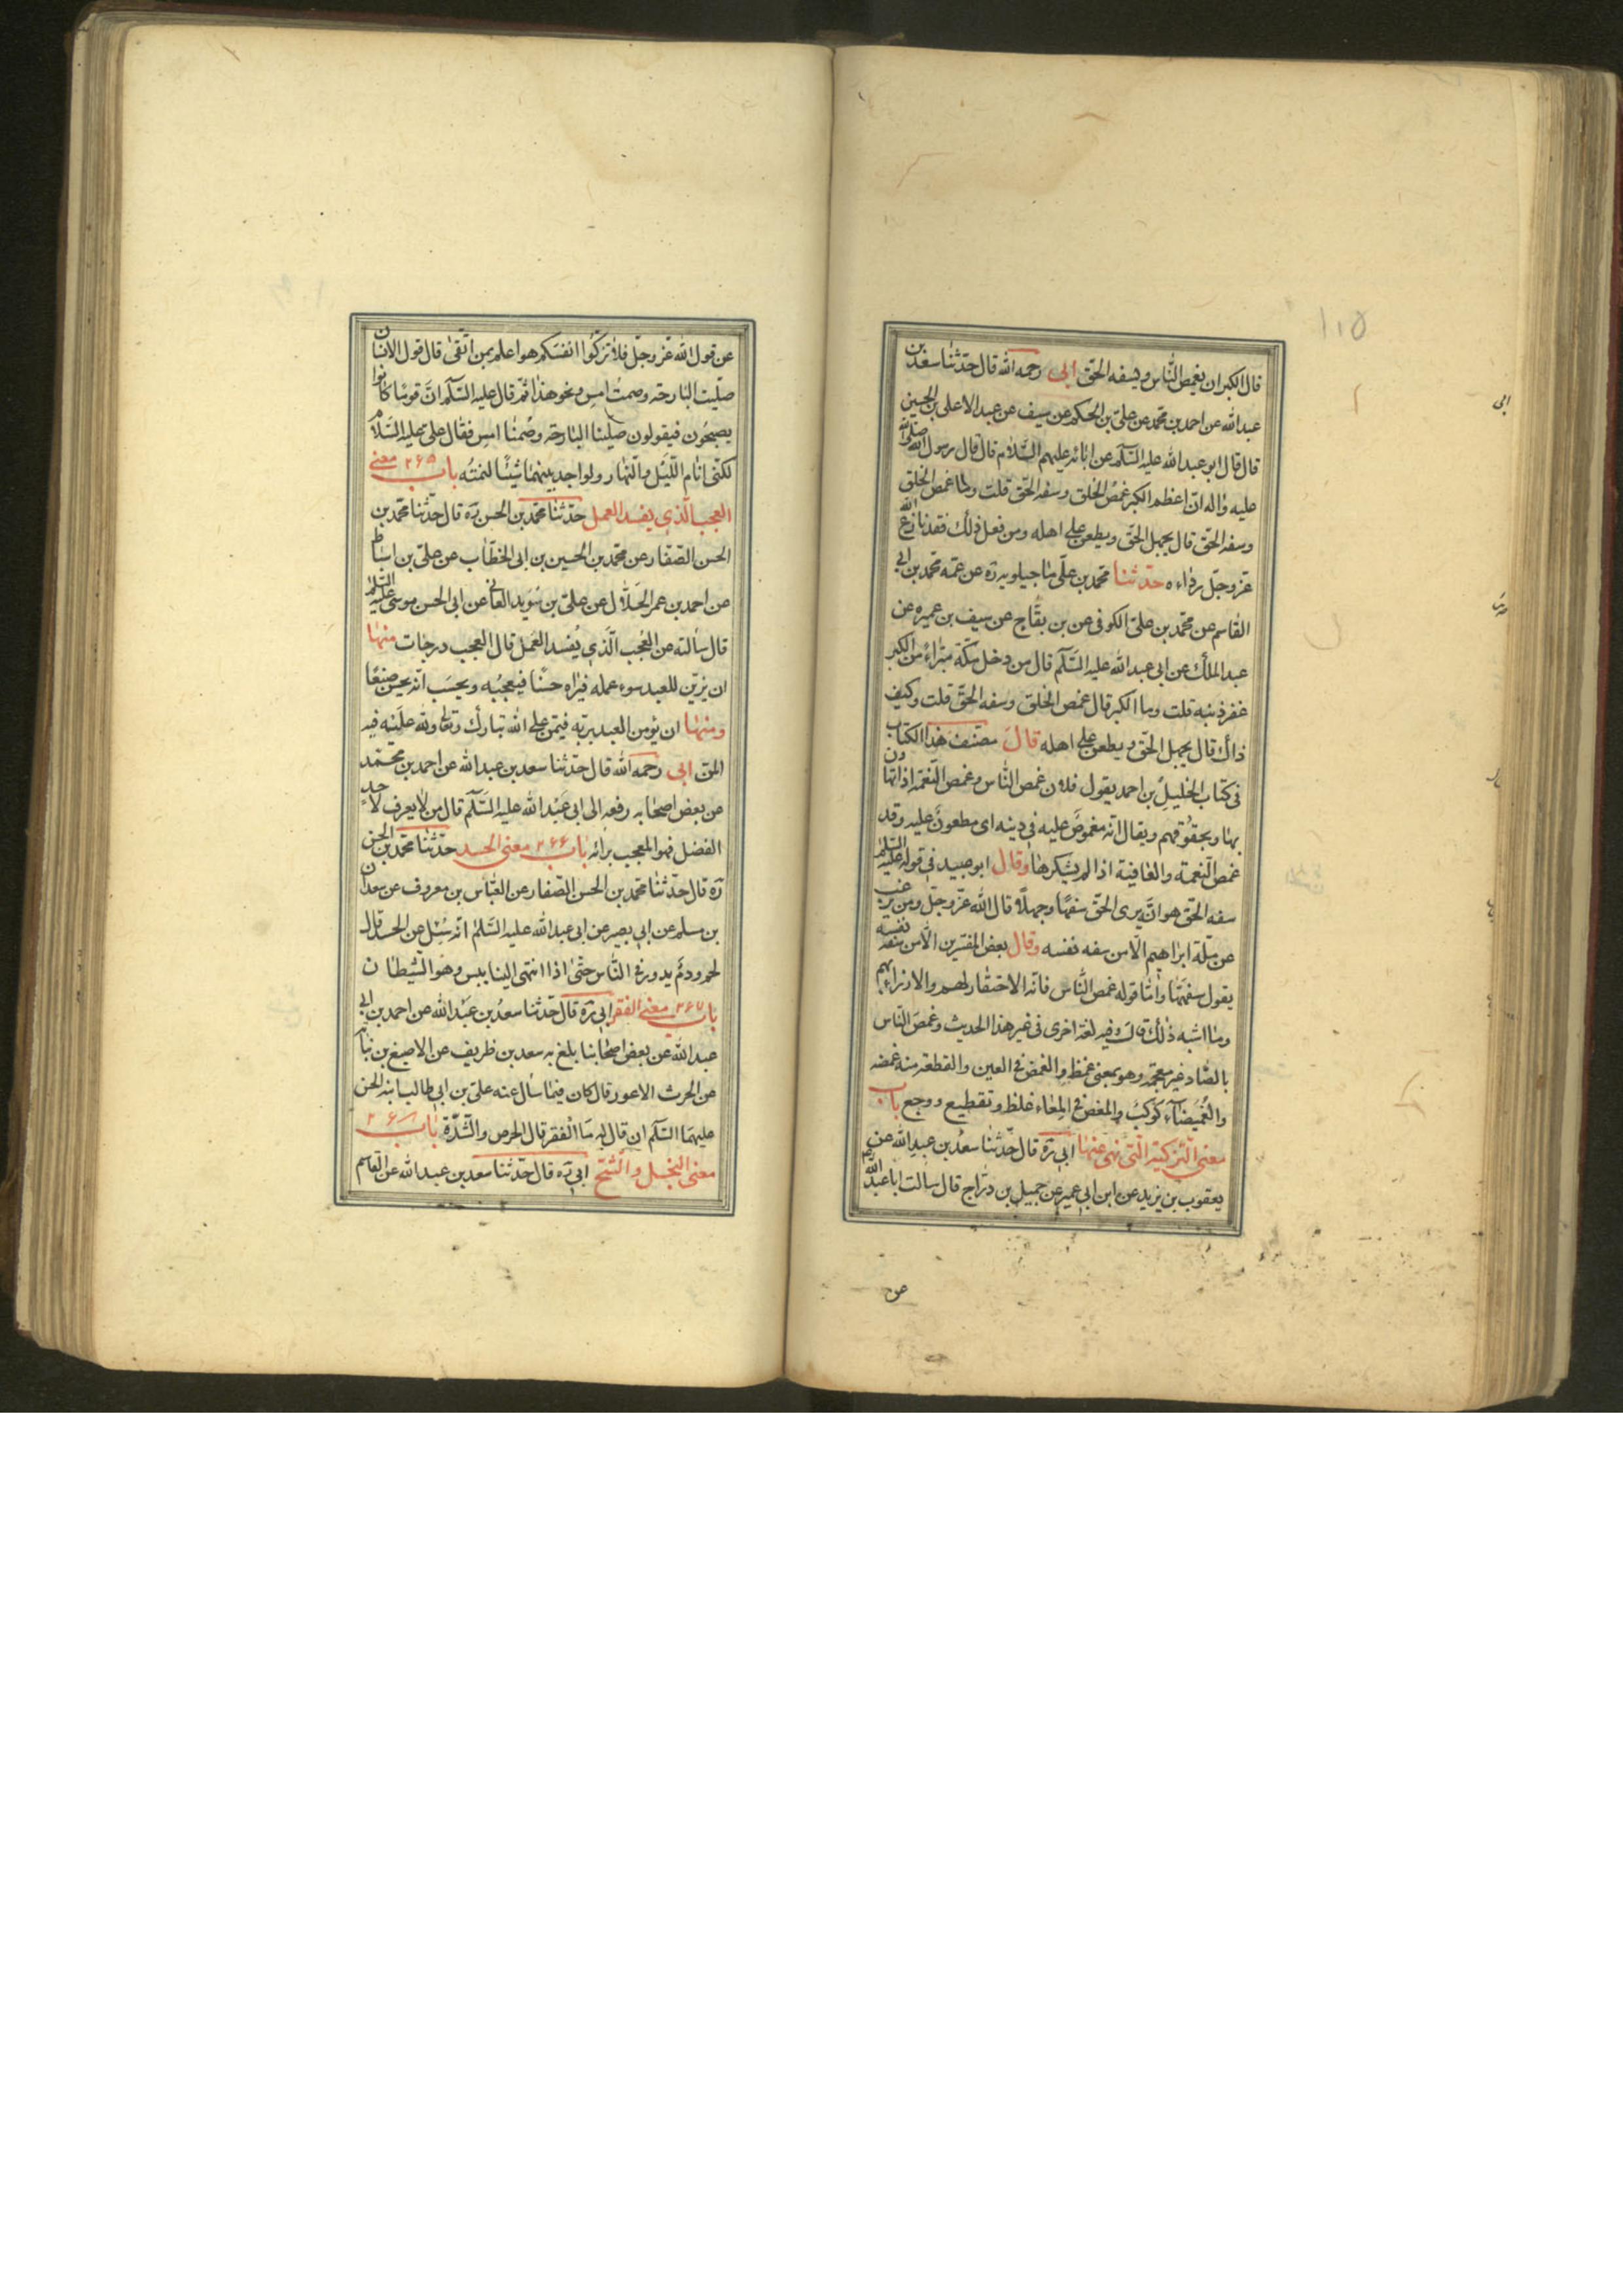 قال الكبر ان يغمص الناس ويسفه الحق ابى رحمه الله قال حدثنا سعد بن
عبدالله عن احمد بن محمد عن على بن الحكم عن سيف عن عبد الاعلى بن
قال قال ابو عبدالله عليه السلام عن ابائه عليهم السلام قال قال رسول الله صلى الله
عليه واله ان اعظم الكبر غمص الخلق وسفه الحق قلت وما غمص الخلق
وسفه الحق قال يجهل الحق ويطعن على اهله ومن فعل ذلك فقد نازع الله
عز وجل رداءه حدثنا محمد بن على ماجيلويه ره عن عمه محمد بن ابي
القاسم عن محمد بن على الكوفى عن بن بقاح عن سيف بن عميره عن
عبد الملك عن ابى عبدالله عليه السلام قال من دخل مكة مبراء من الكبر
غفر ذنبه قلت وما الكبر قال غمص الخلق وسفه الحق قلت وكيف
ذاك قال يجهل الحق ويطعن على اهله قال مصنف هذا الكتاب
فى كتاب الخليل بن احمد يقول فلان غمص الناس وغمص النعمة اذا تهاون
بها وبحقوقهم ويقال انه مغموص عليه في دينه اى مطعون عليه وقد
غمص النعمة والعافية اذا لم يشكرها وقال ابو عبيد في قوله عليه السلم
سفه الحق هو ان يرى الحق سفها وجهلا قال الله عز وجل ومن يرغب
عن ملة ابراهيم الا من سفه نفسه وقال بعض المفسرين الا من سفه نفسه
يقول سفهها واما قوله غمص الناس فانه الاحتقار لهم والازراء بهم
وما اشبه ذلك قال وفيه لغة اخرى فى غير هذا الحديث وغمص الناس
بالصاد غير معجمة وهو بمعنى غمط والغمص فى العين والقطعة منه غمصه
والغميصاء كوكب والمغص فى المعاء غلظ وتقطيع ووجع باب
معنى التزكية التى نهى عنها ابى ره قال حدثنا سعد بن عبد الله عن
يعقوب بن يزيد عن ابن ابى عمير عن جميل بن دراج قال سالت ابا عبد الله
عن
عن قول الله عز وجل فلا تزكوا انفسكم هو اعلم بمن اتقى قال قول الانسان
صليت البارحة وصمت امس ونحو هذا ثم قال عليه السلام ان قوما كانوا
يصبحون فيقولون صلينا البارحة وصمنا امس فقال على عليه السلام
لكنى انام الليل والنهار ولو اجد بينهما شيئا لنمته باب ٢۶۵ معنى
العجب الذي يفسد العمل حدثنا محمد بن الحسن ره قال حدثنا محمد بن
الحسن الصفار عن محمد بن الحسين بن ابى الخطاب عن على بن اسباط
عن احمد بن عمر الحلال عن على بن سويد عن ابى الحسن موسى عليه السلم
قال سالته عن العجب الذي يفسد العمل قال العجب درجات منها
ان يزين للعبد سوء عمله فيراه حسنا فيعجبه ويحسب انه يحسن صنعا
ومنها ان يؤمن العبد بربه فيمن على الله تبارك وتعالى ولله عليه فيه
المن ابى رحمه الله قال حدثنا سعد بن عبد الله عن احمد بن محمد
عن بعض اصحابه رفعه الى ابى عبد الله عليه السلام قال من لا يعرف لاحد
الفضل فهو المعجب برائه باب ٢۶۶ معنى الحسد حدثنا محمد بن الحسن
ره قال حدثنا محمد بن الحسن الصفار عن العباس بن معروف عن سعدان
بن مسلم عن ابي بصير عن ابى عبد الله عليه السلم انه سئل عن الحسد قال
لحم ودم يدور فى الناس حتى اذا انتهى الينا يبس وهو الشيطان
باب ٢۶٧ معنى الفقر ابى ره قال حدثنا سعد بن عبد الله عن احمد بن ابي
عبد الله عن بعض اصحابنا بلغ به سعد بن ظريف عن الاصبغ بن نباته
عن الحرث الاعور قال كان فيما سال عنه على بن ابى طالب ابنه الحسن
عليهما السلام ان قال له ما الفقر قال الحرص والشدة باب ٢۶٨
معنى البخل والشح ابى ره قال حدثنا سعد بن عبد الله عن القاسم